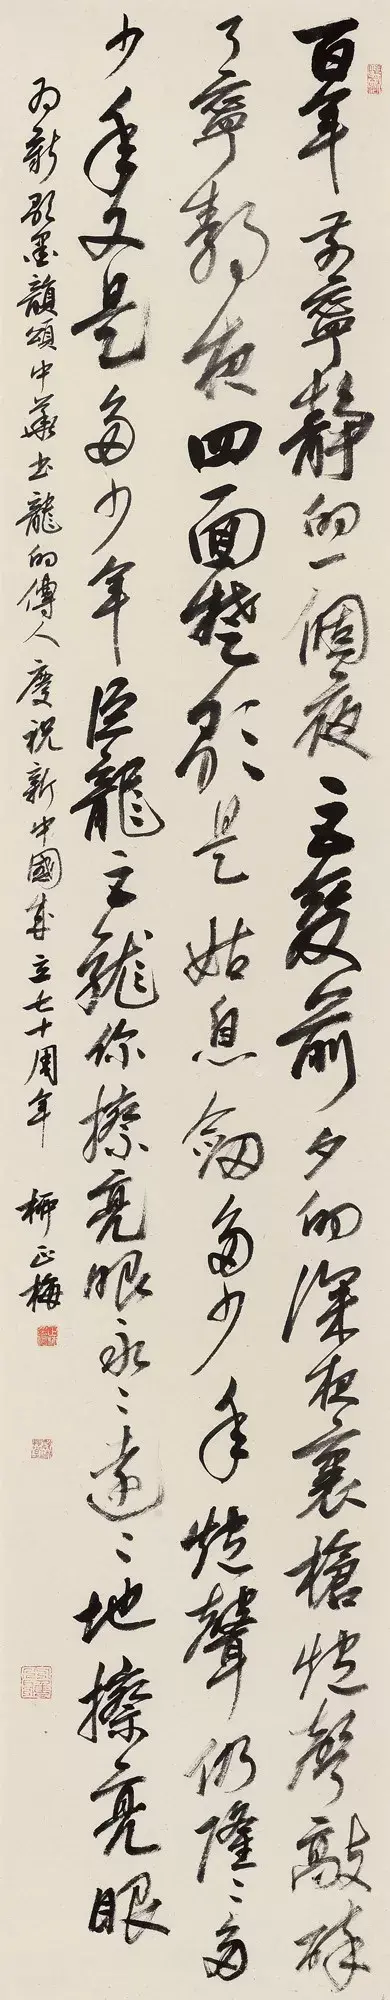 百年前寧靜的一個夜巨變前夕的深夜裏槍炮聲敲碎
了寧靜夜四面楚歌是姑息劍多少年炮聲仍隆〻多
少年又是多少年巨龍巨龍你擦亮眼永〻遠〻地擦亮眼
為新歌墨韻頌中華書龍的傳人慶祝新中國成立七十周年 柳正梅